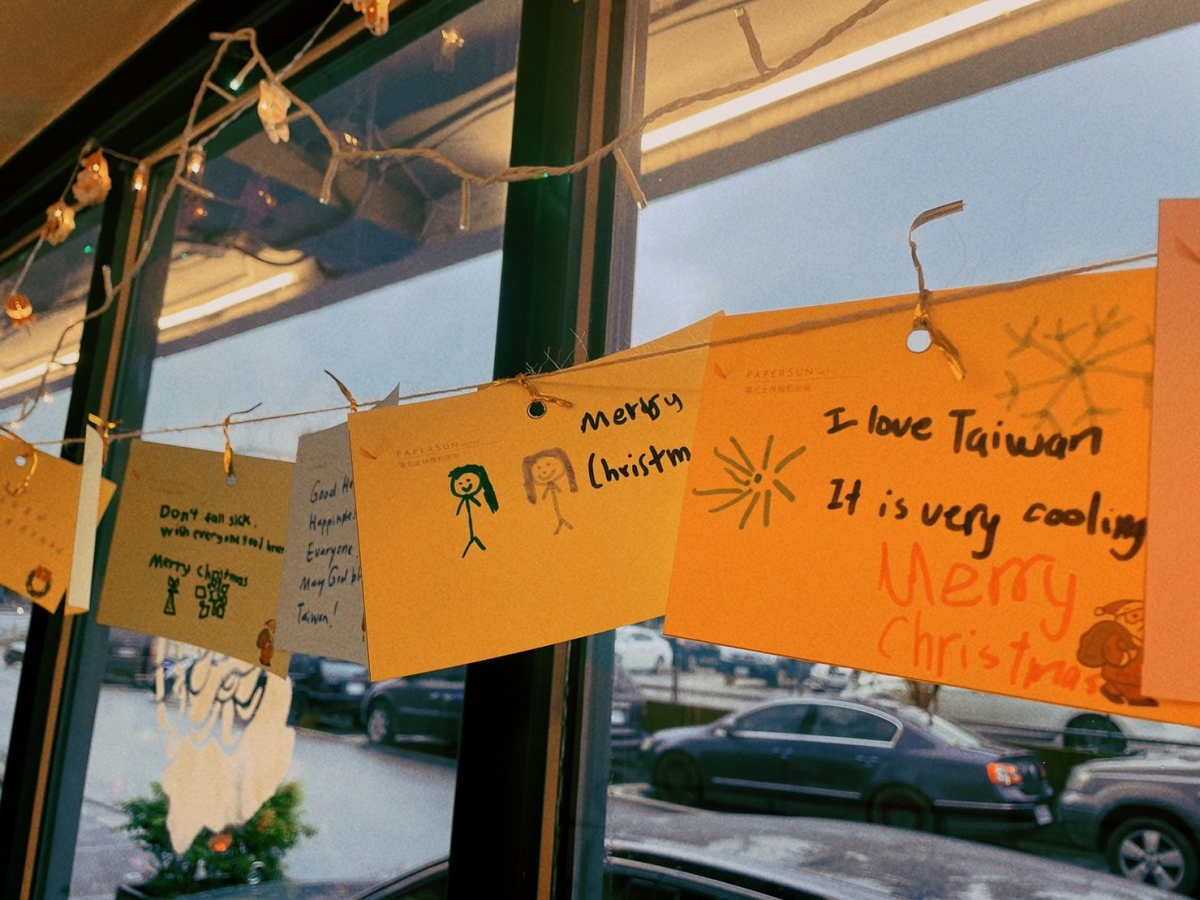 Don't fall sick.
with everyone good
Merry Christmas
Good He
Happine
Everyone
May God bl
Taiwan!
PAPERSUN
Merry
Christm
PAPERSUN
I love Taiwan
It is very cooling
Merry
Christmas